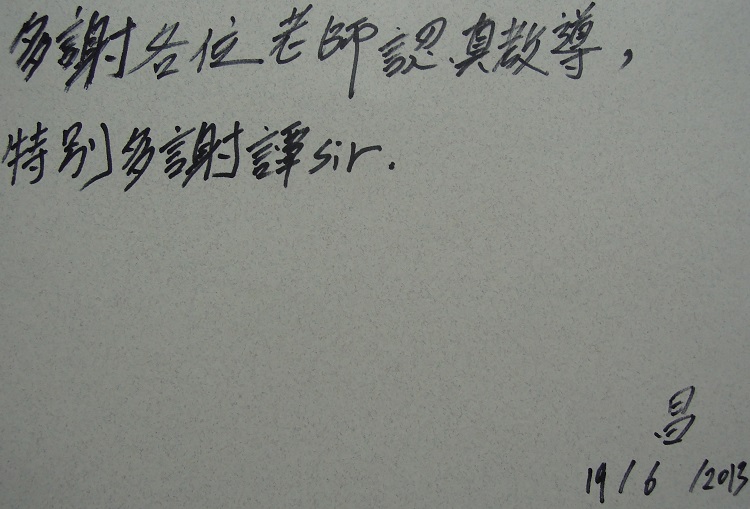 多謝各位老師認真教導，
特別多謝譚sir.
昌
19/6/2013